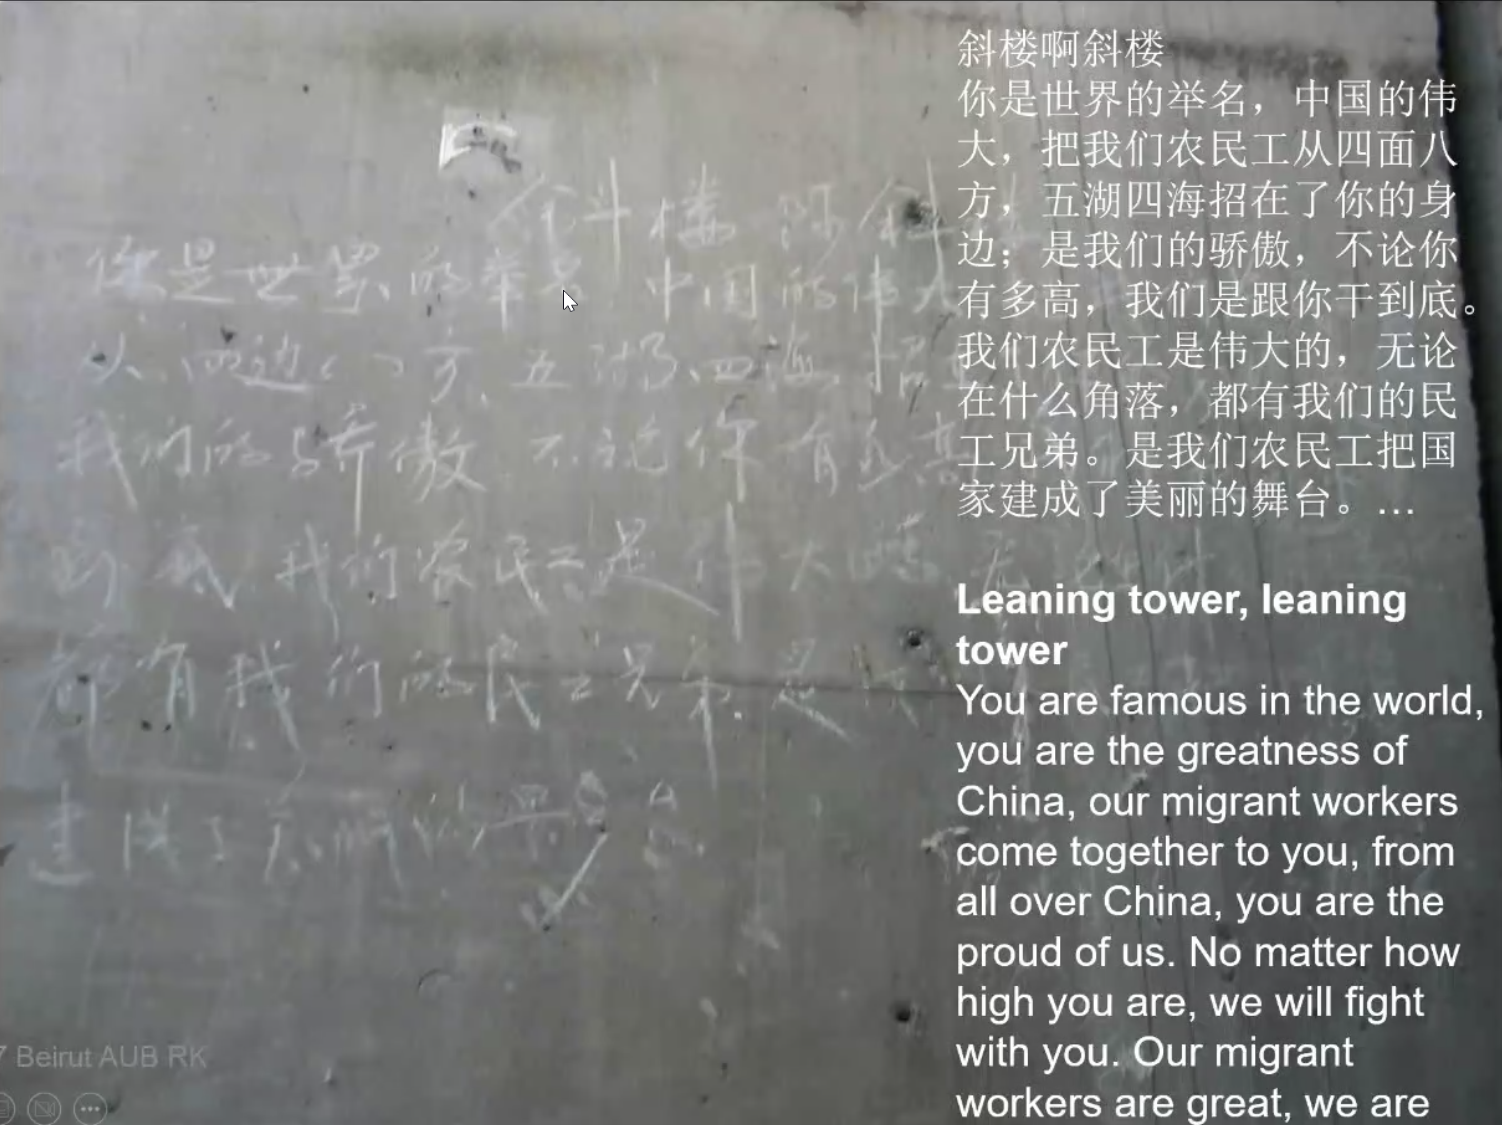 斜楼 啊斜
你是世界的举名 中国的伟大
从四边八方、五湖四海招
我们的骄傲 不论你有多高
到底 我们农民工是伟大
都有我们的民工兄弟.是
建成了美丽的
斜楼啊斜楼
你是世界的举名，中国的伟
大，把我们农民工从四面八
方，五湖四海招在了你的身
边；是我们的骄傲，不论你
有多高，我们是跟你干到底。
我们农民工是伟大的，无论
在什么角落，都有我们的民
工兄弟。是我们农民工把国
家建成了美丽的舞台。…
Leaning tower, leaning
tower
You are famous in the world,
you are the greatness of
China, our migrant workers
come together to you, from
all over China, you are the
proud of us. No matter how
high you are, we will fight
with you. Our migrant
workers are great, we are
7 Beirut AUB RK